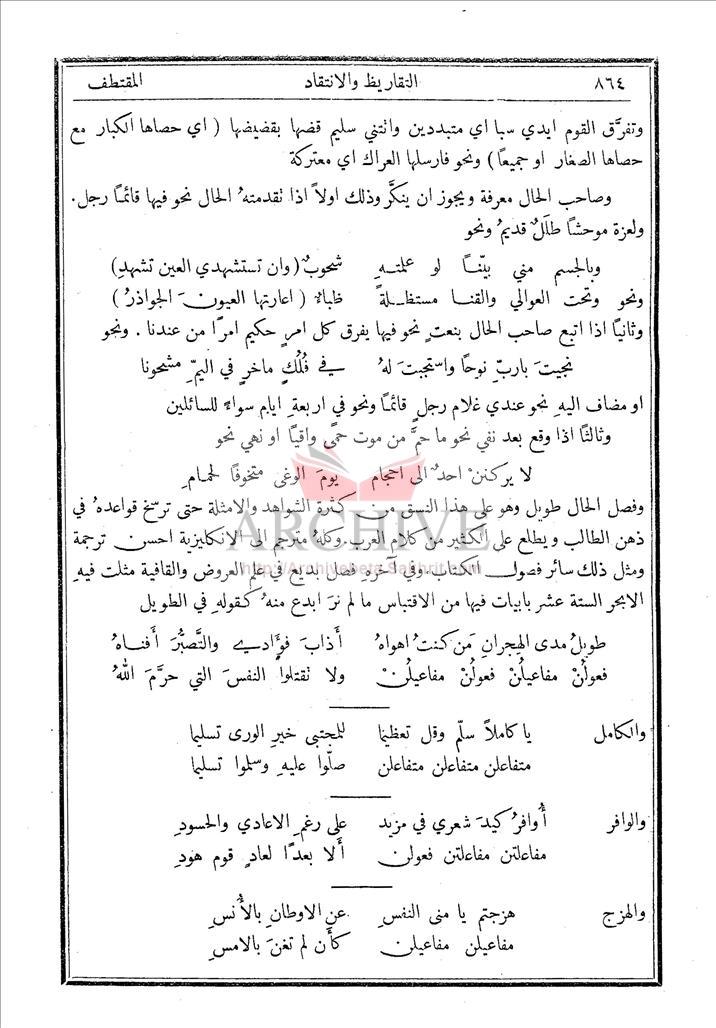 ٨٦٤ التقاريظ والانتقاد المقتطف
وتفرَّق القوم ايدي سبا اي متبددين واتتني سليم قضها بقضيضها ( اي حصاها الكبار مع
حصاها الصغار او جميعًا ) ونحو فارسلها العراك اي معتركة
وصاحب الحال معرفة ويجوز ان ينكَّر وذلك اولاً اذا تقدمتهُ الحال نحو فيها قائمًا رجل.
ولعزة موحشًا طللٌ قديمُ ونحو
وبالجسم مني بيّنًا لو علمتهِ شحوبٌ ( وان تستشهدي العين تشهدِ )
ونحو وتحت العوالي والقنا مستظلةً ظباءٌ ( اعارتها العيونَ الجواذرُ )
وثانيًا اذا اتبع صاحب الحال بنعتٍ نحو فيها يفرق كل امرٍ حكيم امرًا من عندنا . ونحو
نجيتَ ياربِّ نوحًا واستجبتَ لهُ في فُلُكٍ ماخرٍ في اليمِّ مشحونا
او مضاف اليهِ نحو عندي غلام رجلٍ قائمًا ونحو في اربعة ايام سواءً للسائلين
وثالثًا اذا وقع بعد نفي نحو ما حمَّ من موت حمًى واقيًا او نهي نحو
لا يركننْ احدٌ الى احجام يومَ الوغى متخوفًا لحمامِ
وفصل الحال طويل وهو على هذا النسق من كثرة الشواهد والامثلة حتى ترسخ قواعدهُ في
ذهن الطالب ويطلع على الكثير من كلام العرب. وكلهُ مترجم الى الانكليزية احسن ترجمة
ومثل ذلك سائر فصول الكتاب. وفي آخرهِ فصل بديع في علم العروض والقافية مثلت فيهِ
الابحر الستة عشر بابيات فيها من الاقتباس ما لم نرَ ابدع منهُ كقولهِ في الطويل
طويلُ مدى الهجرانِ مَن كنتُ اهواهُ أذابَ فؤادي والتَّصبُّرَ أفناهُ
فعولُنْ مفاعيلُنْ فعولُنْ مفاعيلُنْ ولا تقتلوا النفسَ التي حرَّمَ اللهُ
والكامل يا كاملاً سلّم وقل تعظيما للمجتبى خيرِ الورى تسليما
متفاعلن متفاعلن متفاعلن صلّوا عليهِ وسلموا تسليما
والوافر أوافرُ كيدَ شعري في مزيد على رغمِ الاعادي والحسودِ
مفاعلتن مفاعلتن فعولن ألا بعدًا لعادٍ قوم هودِ
والهزج هزجتم يا منى النفسِ عنِ الاوطانِ بالأُنسِ
مفاعيلن مفاعيلن كأن لم تغنَ بالامسِ
ARCHIVE
http://Archivebeta.Sakhrit.com